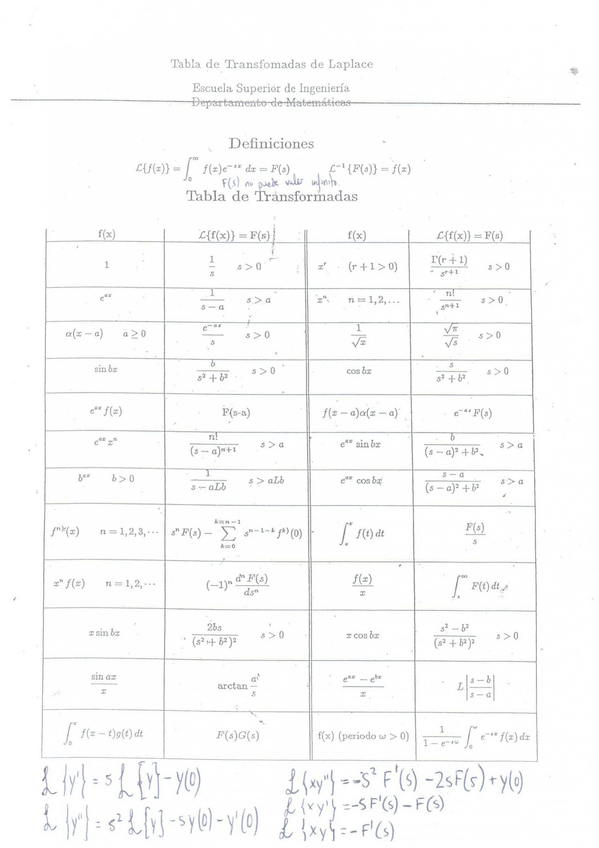 Tabla de Transfomadas de Laplace
Escuela Superior de Ingeniería
Departamento de Matemáticas
Definiciones
ℒ{f(x)} = ∫₀^∞ f(x)e^{−sx} dx = F(s)    ℒ⁻¹{F(s)} = f(x)
F(s) no puede valer infinito.
Tabla de Transformadas
f(x) | ℒ{f(x)} = F(s) | f(x) | ℒ{f(x)} = F(s)
1 | 1/s    s > 0 | x^r    (r + 1 > 0) | Γ(r + 1)/s^{r+1}    s > 0
e^{ax} | 1/(s − a)    s > a | x^n    n = 1, 2, … | n!/s^{n+1}    s > 0
α(x − a)    a ≥ 0 | e^{−as}/s    s > 0 | 1/√x | √π/√s    s > 0
sin bx | b/(s² + b²)    s > 0 | cos bx | s/(s² + b²)    s > 0
e^{ax} f(x) | F(s-a) | f(x − a)α(x − a) | e^{−as} F(s)
e^{ax} x^n | n!/(s − a)^{n+1}    s > a | e^{ax} sin bx | b/((s − a)² + b²)    s > a
b^{ax}    b > 0 | 1/(s − aLb)    s > aLb | e^{ax} cos bx | (s − a)/((s − a)² + b²)    s > a
f^{n)}(x)    n = 1, 2, 3, ⋯ | s^n F(s) − ∑_{k=0}^{k=n−1} s^{n−1−k} f^{k)}(0) | ∫₀^x f(t) dt | F(s)/s
x^n f(x)    n = 1, 2, ⋯ | (−1)^n d^n F(s)/ds^n | f(x)/x | ∫_s^∞ F(t) dt
x sin bx | 2bs/(s² + b²)²    s > 0 | x cos bx | (s² − b²)/(s² + b²)²    s > 0
sin ax/x | arctan a/s | (e^{ax} − e^{bx})/x | L|(s − b)/(s − a)|
∫₀^x f(x − t)g(t) dt | F(s)G(s) | f(x) (periodo ω > 0) | 1/(1 − e^{−sω}) ∫₀^ω e^{−sx} f(x) dx
ℒ{y'} = sℒ[y] − y(0)    ℒ{xy''} = −s² F'(s) − 2sF(s) + y(0)
ℒ{xy'} = −sF'(s) − F(s)
ℒ{y''} = s² ℒ[y] − sy(0) − y'(0)    ℒ{xy} = −F'(s)